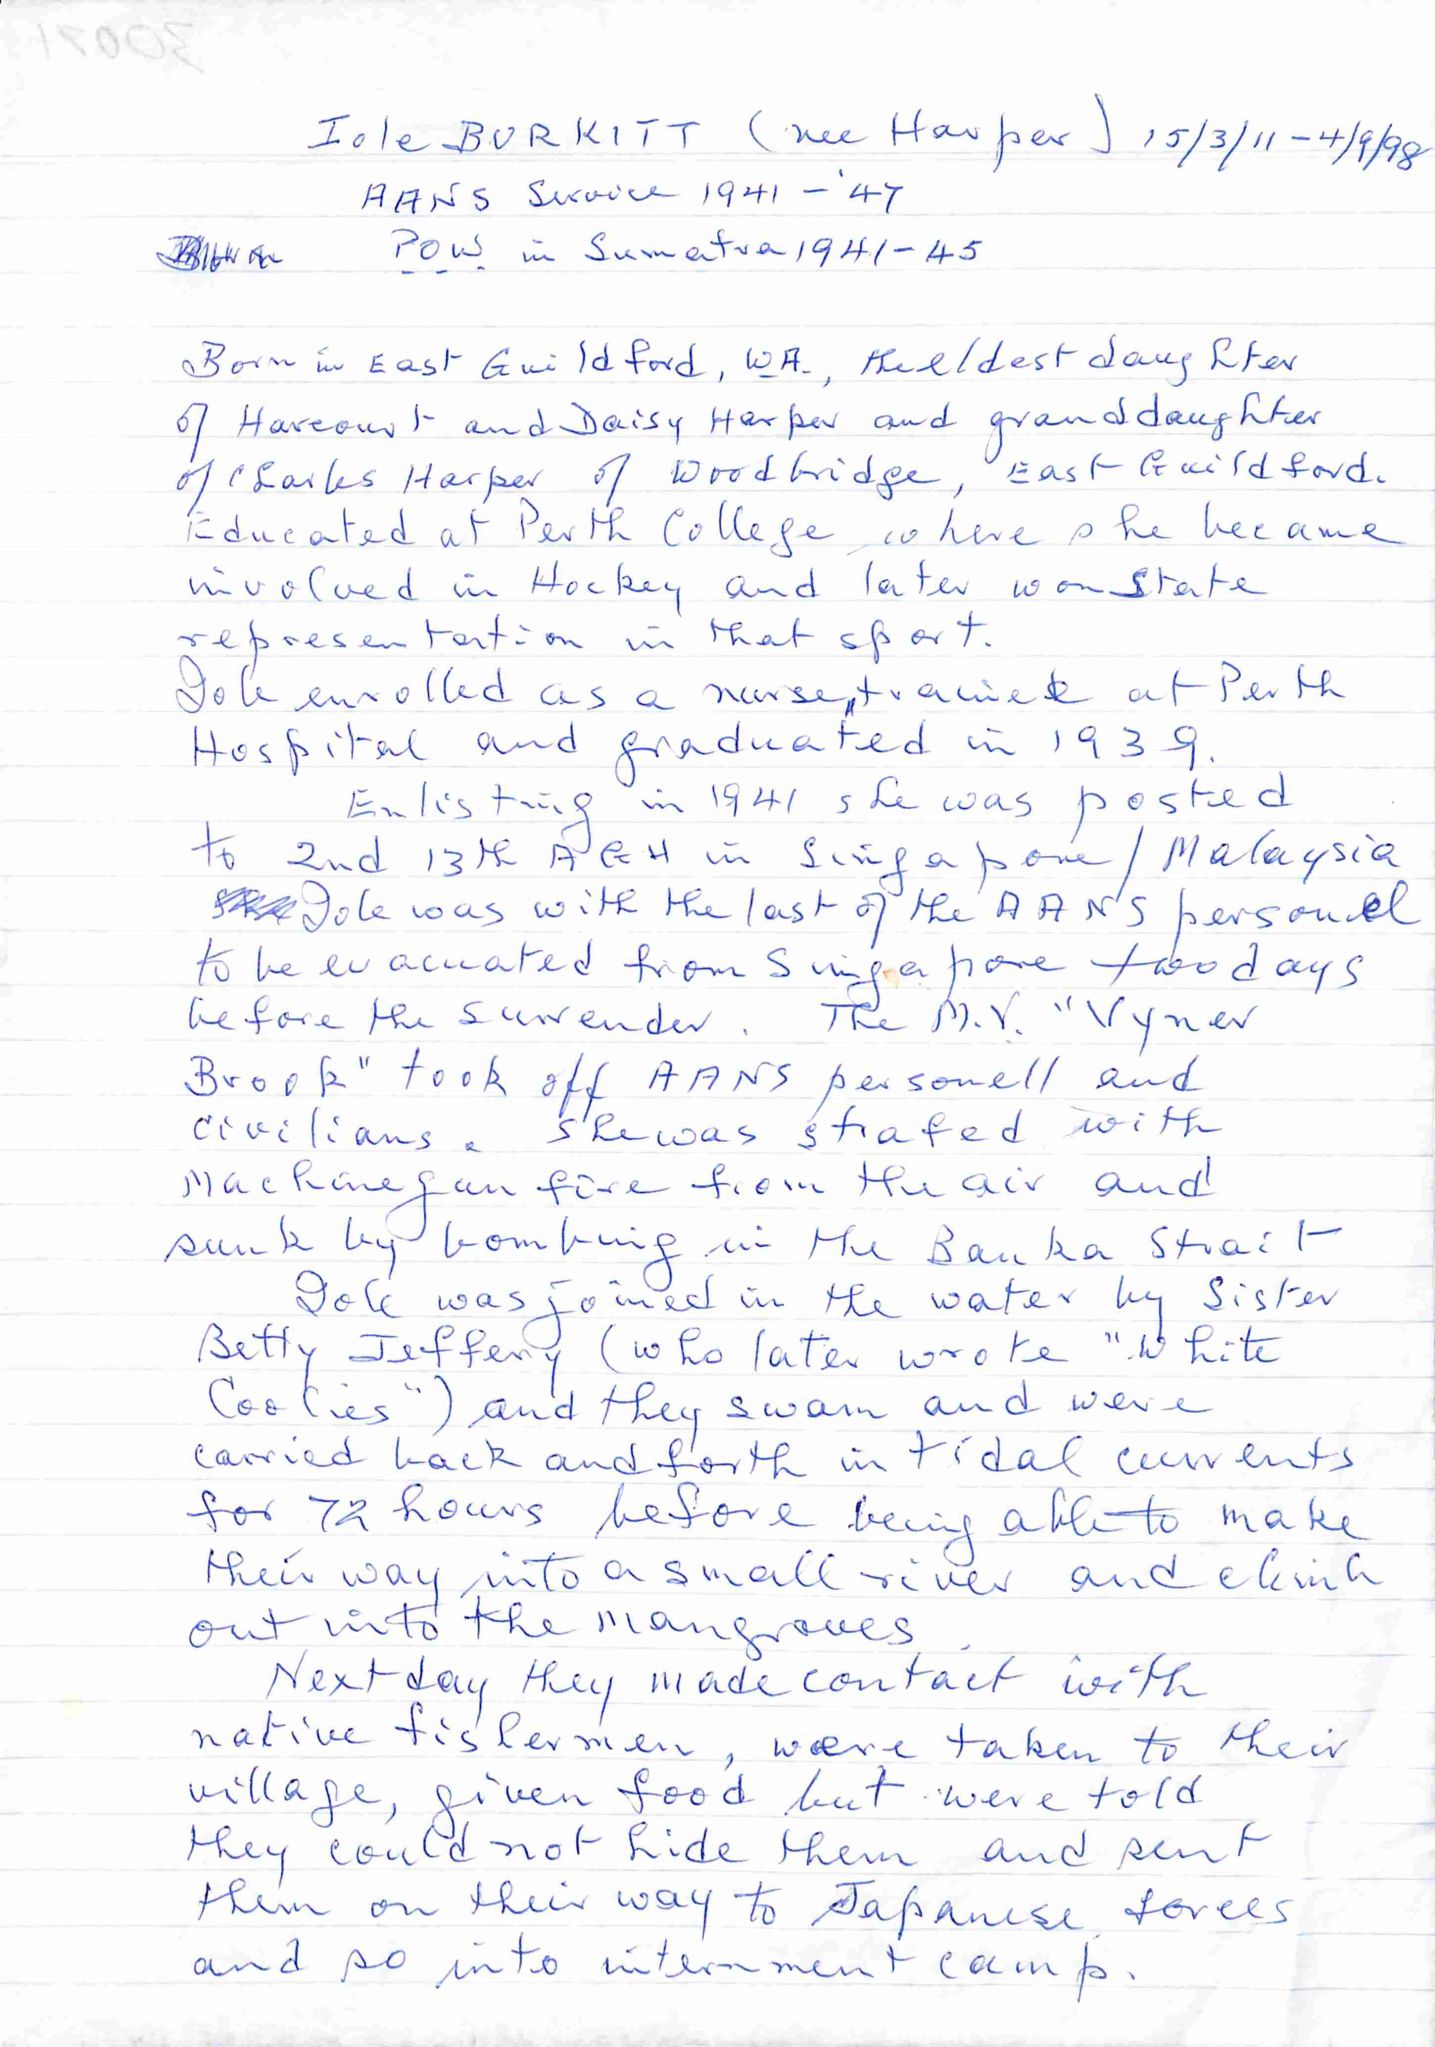 Iole BURKITT (nee Harper) 15/3/11 - 4/9/98
AANS Service 1941 - '47
P.O.W. in Sumatra 1941 - 45
Born in East Guildford, W.A., the eldest daughter
of Harcourt and Daisy Harper and granddaughter
of Charles Harper of Woodbridge, East Guildford.
Educated at Perth College where she became
involved in Hockey and later won State
representation in that sport.
Iole enrolled as a nurse, trainee at Perth
Hospital and graduated in 1939.
Enlisting in 1941 she was posted
to 2nd 13th AGH in Singapore / Malaysia
Iole was with the last of the AANS personel
to be evacuated from Singapore two days
before the surrender. The M.V. "Vyner
Brook" took off AANS personell and
civilians. She was strafed with
Machinegun fire from the air and
sunk by bombing in the Banka Strait
Iole was joined in the water by Sister
Betty Jeffery (who later wrote "White
Coolies") and they swam and were
carried back and forth in tidal currents
for 72 hours before being able to make
their way into a small river and climb
out into the mangroves.
Next day they made contact with
native fishermen, were taken to their
village, given food but were told
they could not hide them and sent
them on their way to Japanese forces
and so into internment camp.